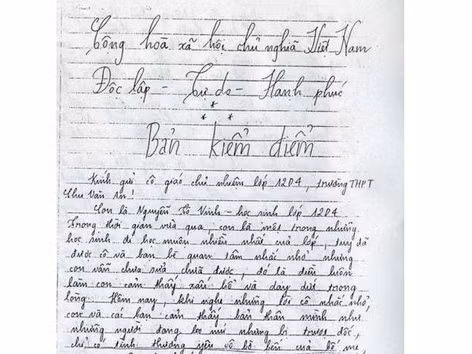 Cộng hoà xã hội chủ nghĩa Việt Nam
Độc lập - Tự do - Hạnh phúc
* * *
Bản kiểm điểm
Kính gửi cô giáo chủ nhiệm lớp 12D4, trường THPT
Chu Văn An!
Con là Nguyễn Tô Vinh - học sinh lớp 12D4
Trong thời gian vừa qua, con là một trong những
học sinh đi học muộn nhiều nhất của lớp, tuy đã
được cô và bạn bè quan tâm nhắc nhở nhưng
con vẫn chưa sửa chữa được, đó là điều luôn
làm con cảm thấy xấu hổ và day dứt trong
lòng. Hôm nay, khi nghe những lời cô nhắc nhở,
con và các bạn cảm thấy bản thân mình như
những người đang bị trượt dốc,
chỉ có tình thương yêu vô bờ bến của bố mẹ,